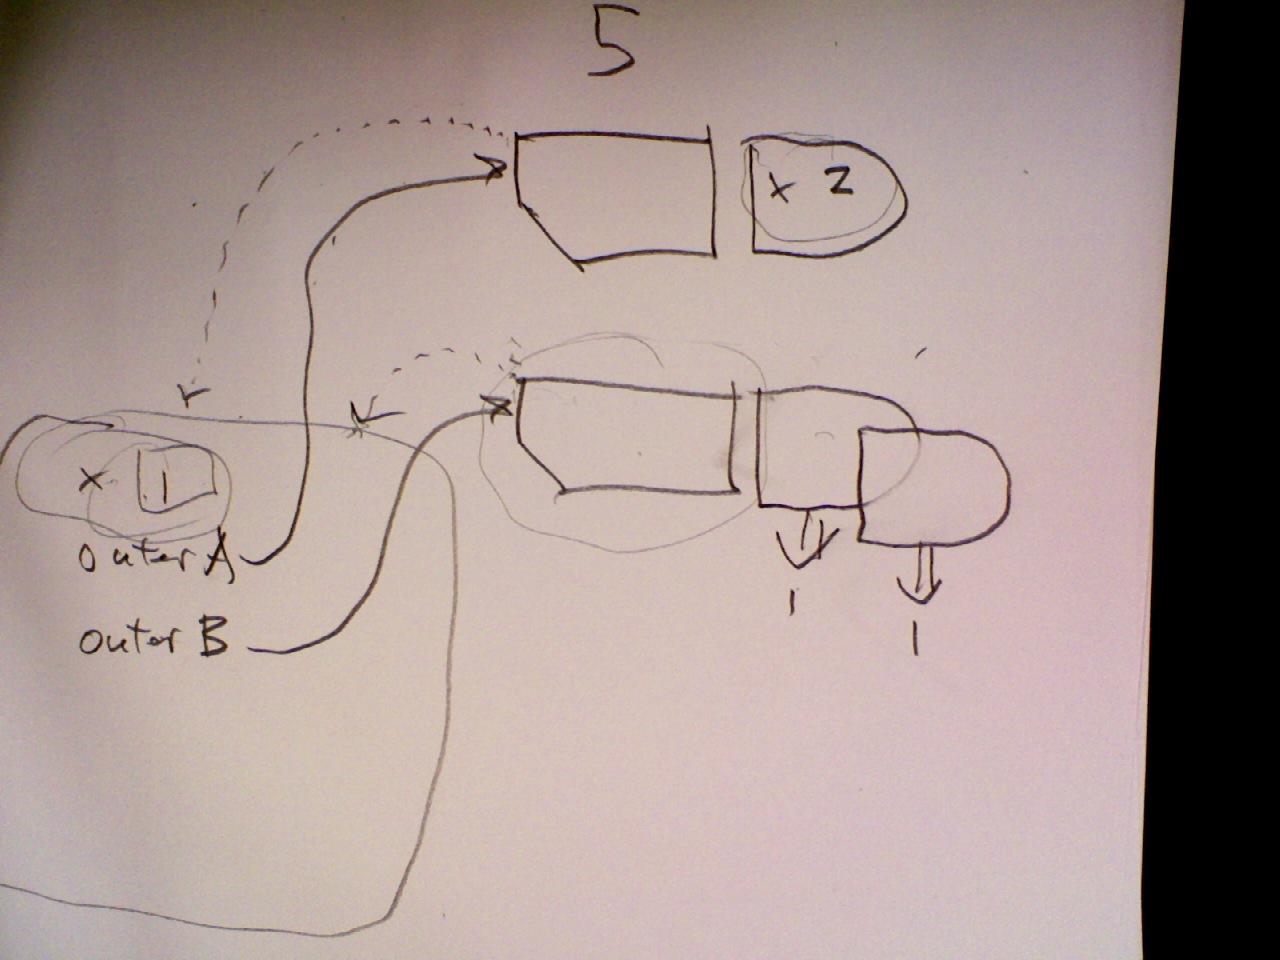 5
x 2
x 1
outer A
outer B
1
1